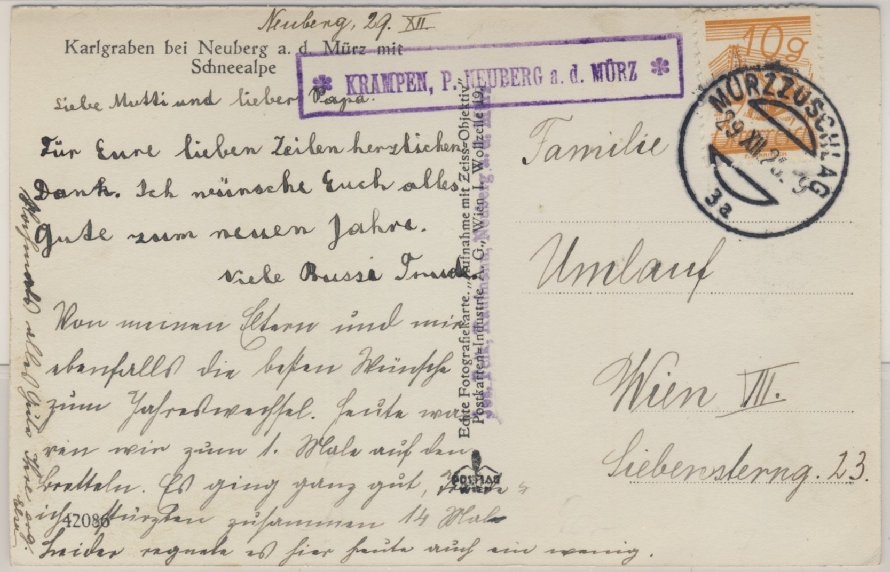 Neuberg, 29. XII.
Karlgraben bei Neuberg a. d. Mürz mit
Schneealpe
* KRAMPEN, P. NEUBERG a. d. MÜRZ *
10g
MÜRZZUSCHLAG
29.XII.2
3a
Liebe Mutti und lieber Papa.
Für Eure lieben Zeilen herzlichen
Dank. Ich wünsche Euch alles
Gute zum neuen Jahre.
Viele Bussi Trude.
Von meinen Eltern und mir
ebenfalls die besten Wünsche
zum Jahreswechsel. Heute wa-
ren wir zum 1. Male auf den
Bretteln. Es ging ganz gut,
ich stürzten zusammen 14 Male
Leider regnete es hier heute auch ein wenig.
alles Gute
42086
Echte Fotografiekarte. Aufnahme mit Zeiss-Objektiv
Postkarten-Industrie A. G., Wien, I. Wollzeile
Familie
Umlauf
Wien VII.
Siebensterng. 23.